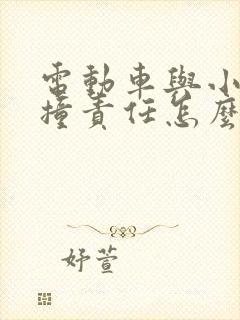 電動車與小
撞責任怎麼
妤萱